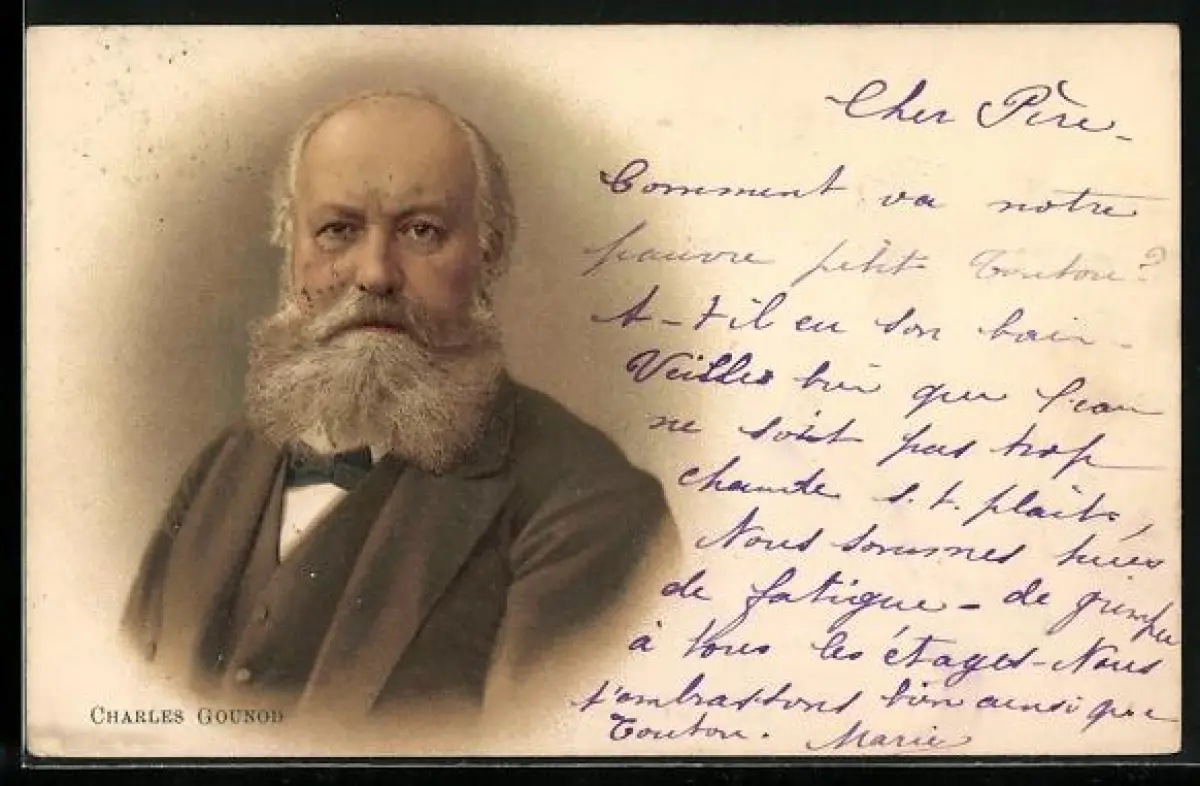 Cher Père -
Comment va notre
pauvre petit Touton?
A-t-il eu son bain -
Veilles bien que l'eau
ne soit pas trop
chaude s.t. plaît,
Nous sommes tuées
de fatigue - de grimper
à tous les étages - Nous
t'embrassons bien ainsi que
Touton. Marie
CHARLES GOUNOD